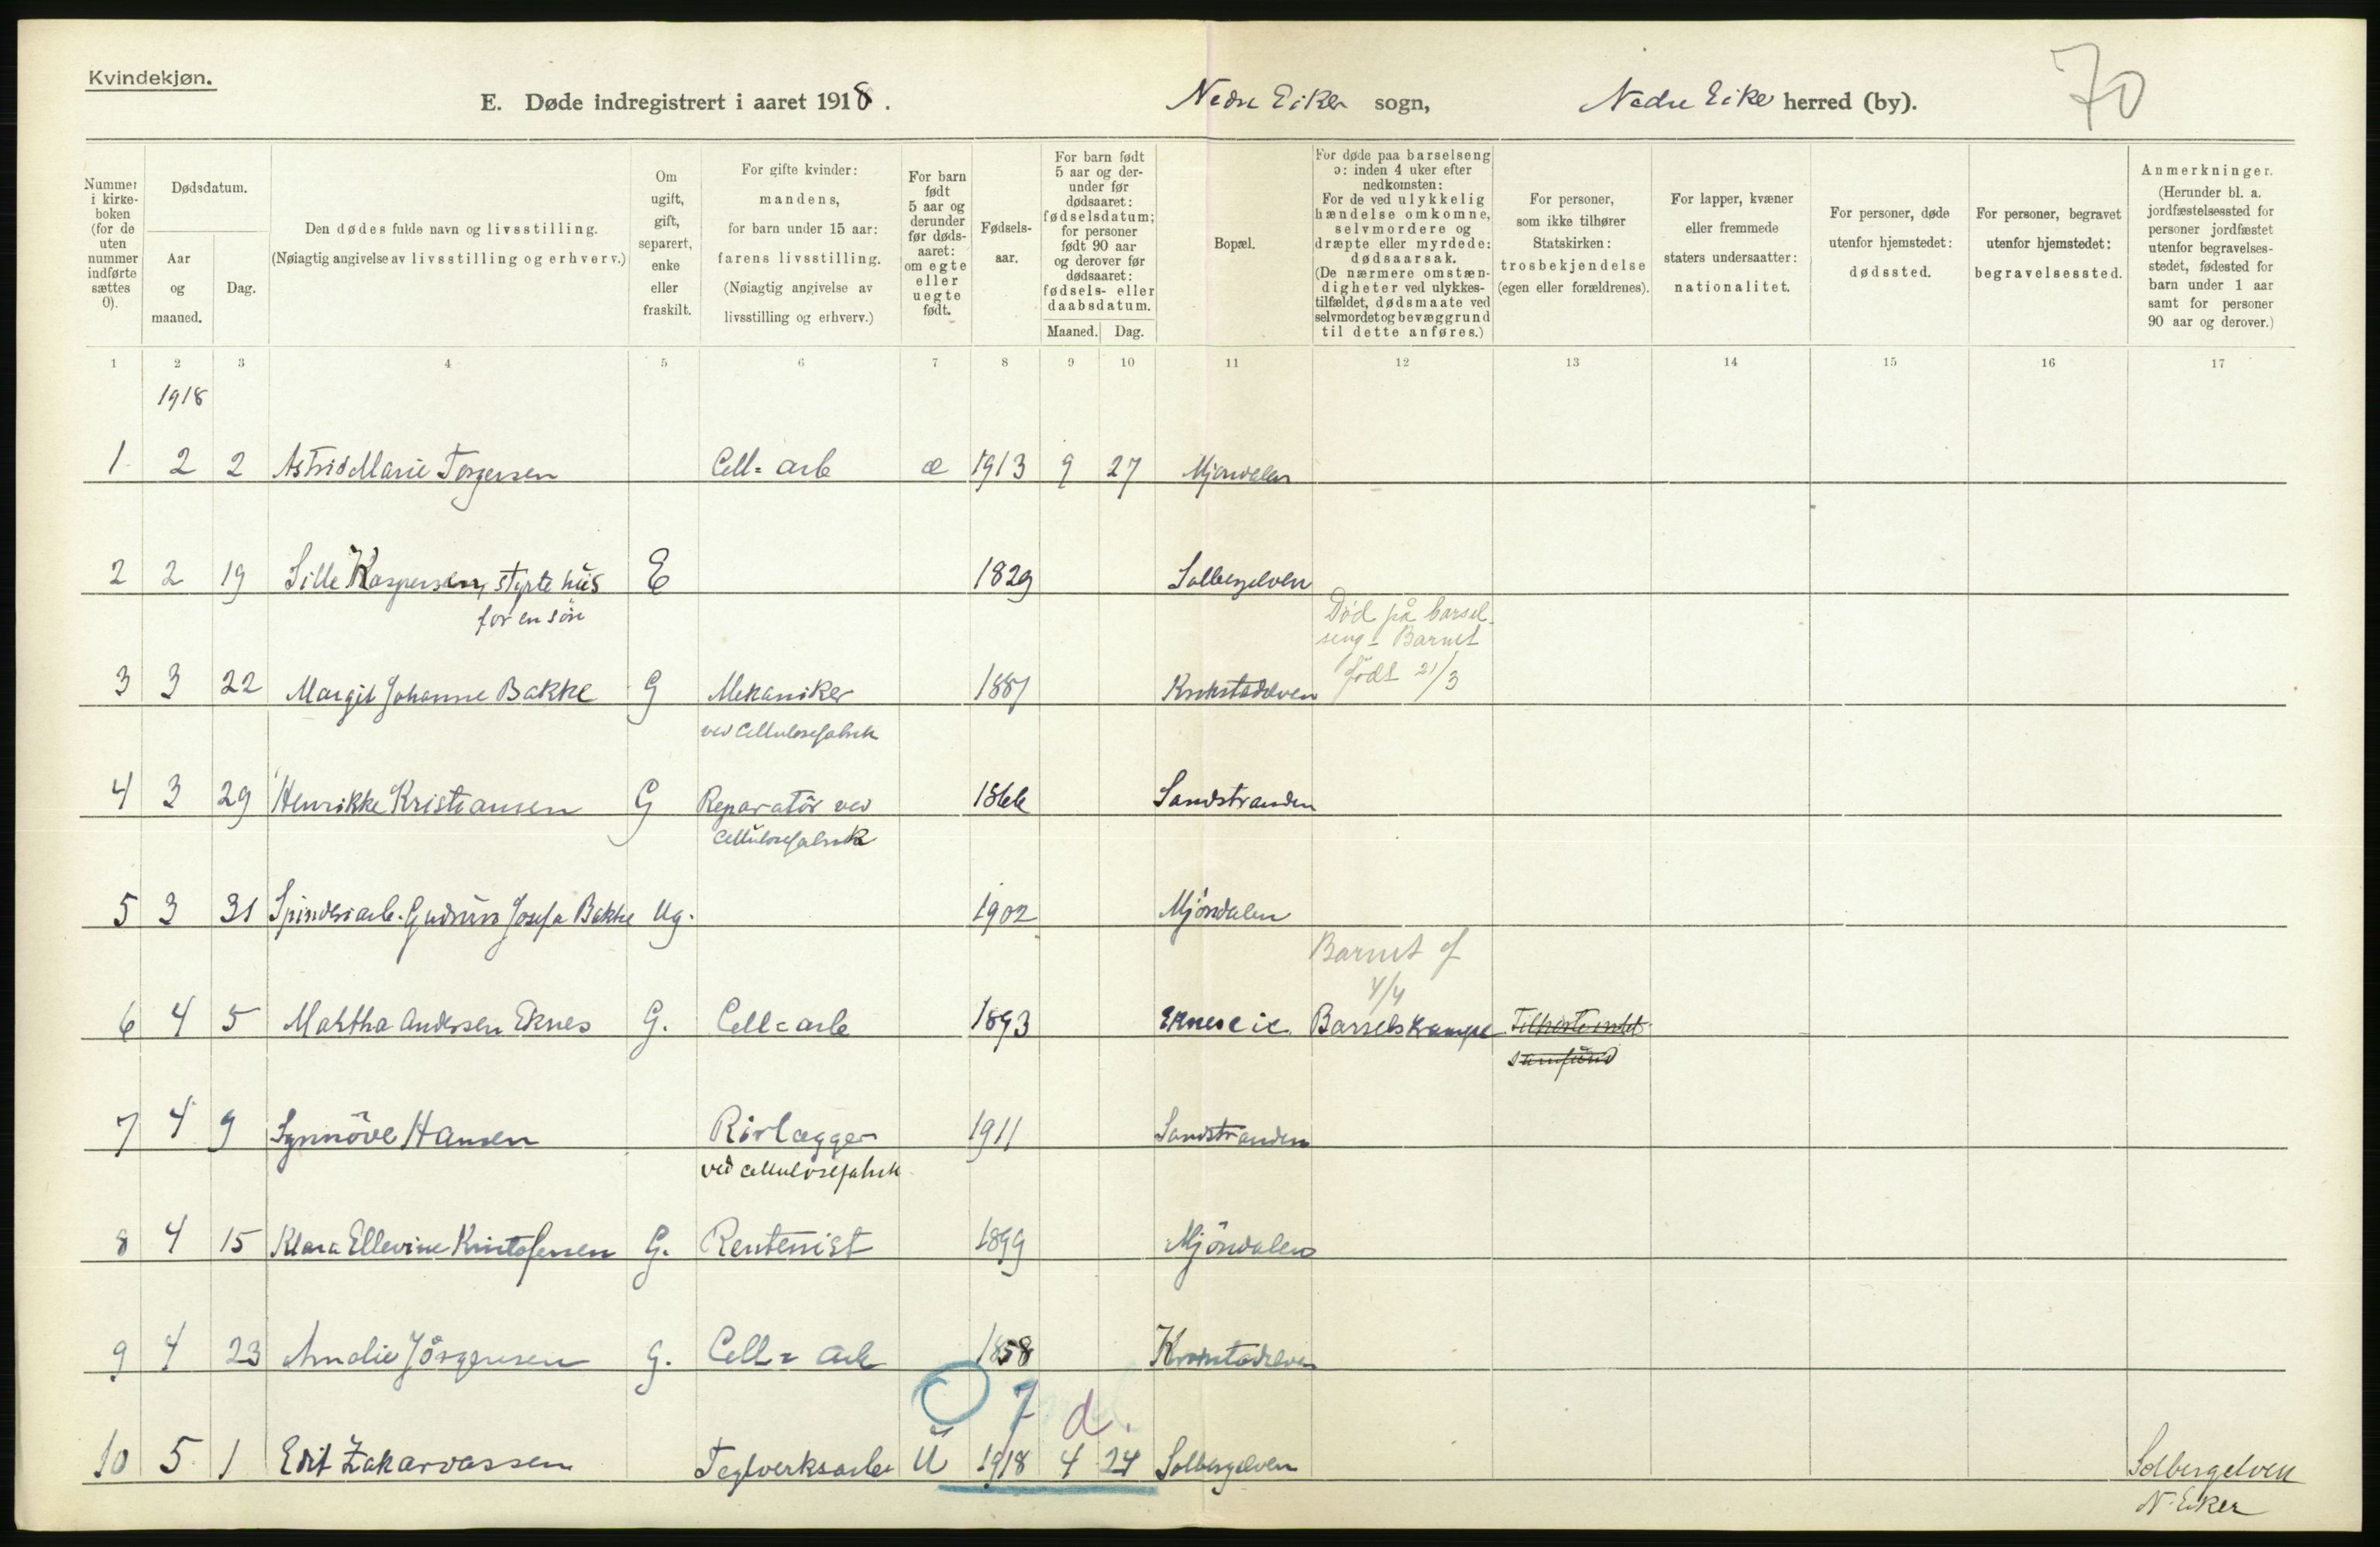 Kvindekjøn.
E. Døde indregistrert i aaret 1918. Nedre Eiker sogn, Nedre Eiker herred (by). 70
Nummer i kirkeboken (for de uten nummer indførte sættes 0).
Dødsdatum.
Aar og maaned.
Dag.
Den dødes fulde navn og livsstilling.
(Nøiagtig angivelse av livsstilling og erhverv.)
Om ugift, gift, separert, enke eller fraskilt.
For gifte kvinder: mandens, for barn under 15 aar: farens livsstilling. (Nøiagtig angivelse av livsstilling og erhverv.)
For barn født 5 aar og derunder før dødsaaret: om egte eller uegte født.
Fødselsaar.
For barn født 5 aar og derunder før dødsaaret: fødselsdatum; for personer født 90 aar og derover før dødsaaret: fødsels- eller daabsdatum.
Maaned. Dag.
Bopæl.
For døde paa barselseng ɔ: inden 4 uker efter nedkomsten: For de ved ulykkelig hændelse omkomne, selvmordere og dræpte eller myrdede: dødsaarsak. (De nærmere omstændigheter ved ulykkestilfældet, dødsmaate ved selvmordet og bevæggrund til dette anføres.)
For personer, som ikke tilhører Statskirken: trosbekjendelse (egen eller forældrenes).
For lapper, kvæner eller fremmede staters undersaatter: nationalitet.
For personer, døde utenfor hjemstedet: dødssted.
For personer, begravet utenfor hjemstedet: begravelsessted.
Anmerkninger. (Herunder bl. a. jordfæstelsessted for personer jordfæstet utenfor begravelsesstedet, fødested for barn under 1 aar samt for personer 90 aar og derover.)
1 2 3 4 5 6 7 8 9 10 11 12 13 14 15 16 17
1918
1 2 2 Astrid Marie Torgersen Cell= arb æ 1913 9 27 Mjøndalen
2 2 19 Sille Kaspersen, styrte hus E 1829 Solbergelven
for en søn
Død på barsel
seng - Barnet
født 21/3
3 3 22 Margit Johanne Bakke G Mekaniker 1887 Krokstadelven
ved Cellulosefabrik
4 3 29 Henrikke Kristiansen G Reparatör ved 1866 Sandstranden
Cellulosefabrik
5 3 31 Spinderiarb. Gudrun Josefa Bakke Ug. 1902 Mjöndalen
Barnet f
4/4
6 4 5 Martha Andersen Eknes G. Cell= arb 1893 Eknes Barselskrampe Tilhørte intet
samfund
7 4 9 Synnöve Hansen Rörlægger 1911 Sandstranden
ved cellulosefabrik
8 4 15 Klara Ellevine Kristofersen G. Rentenist 1899 Mjöndalen
9 4 23 Amalie Jörgensen G. Cell= arb 1858 Krokstadelven
7 d.
10 5 1 Edit Zakariassen Teglverksarb U 1918 4 24 Solbergelven Solbergelven
N. Eiker